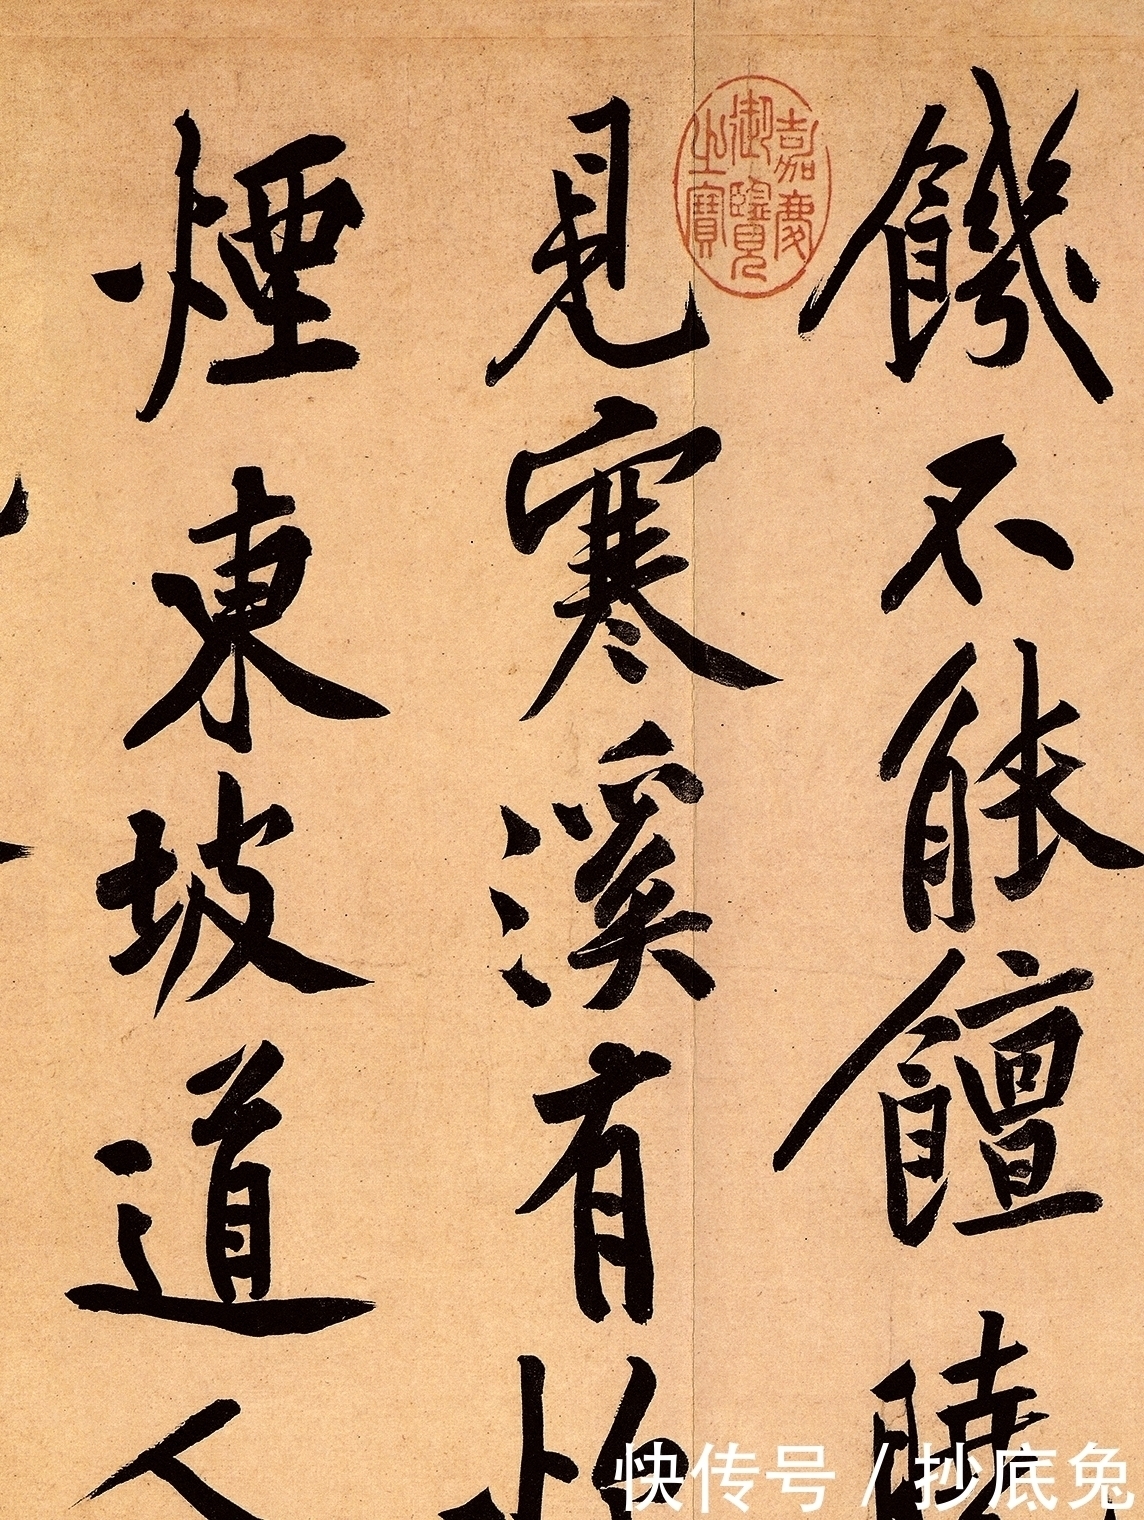 饑不能饘曉
見寒溪有
煙東坡道人
嘉慶
御覽
之寶
快传号 / 抄底兔